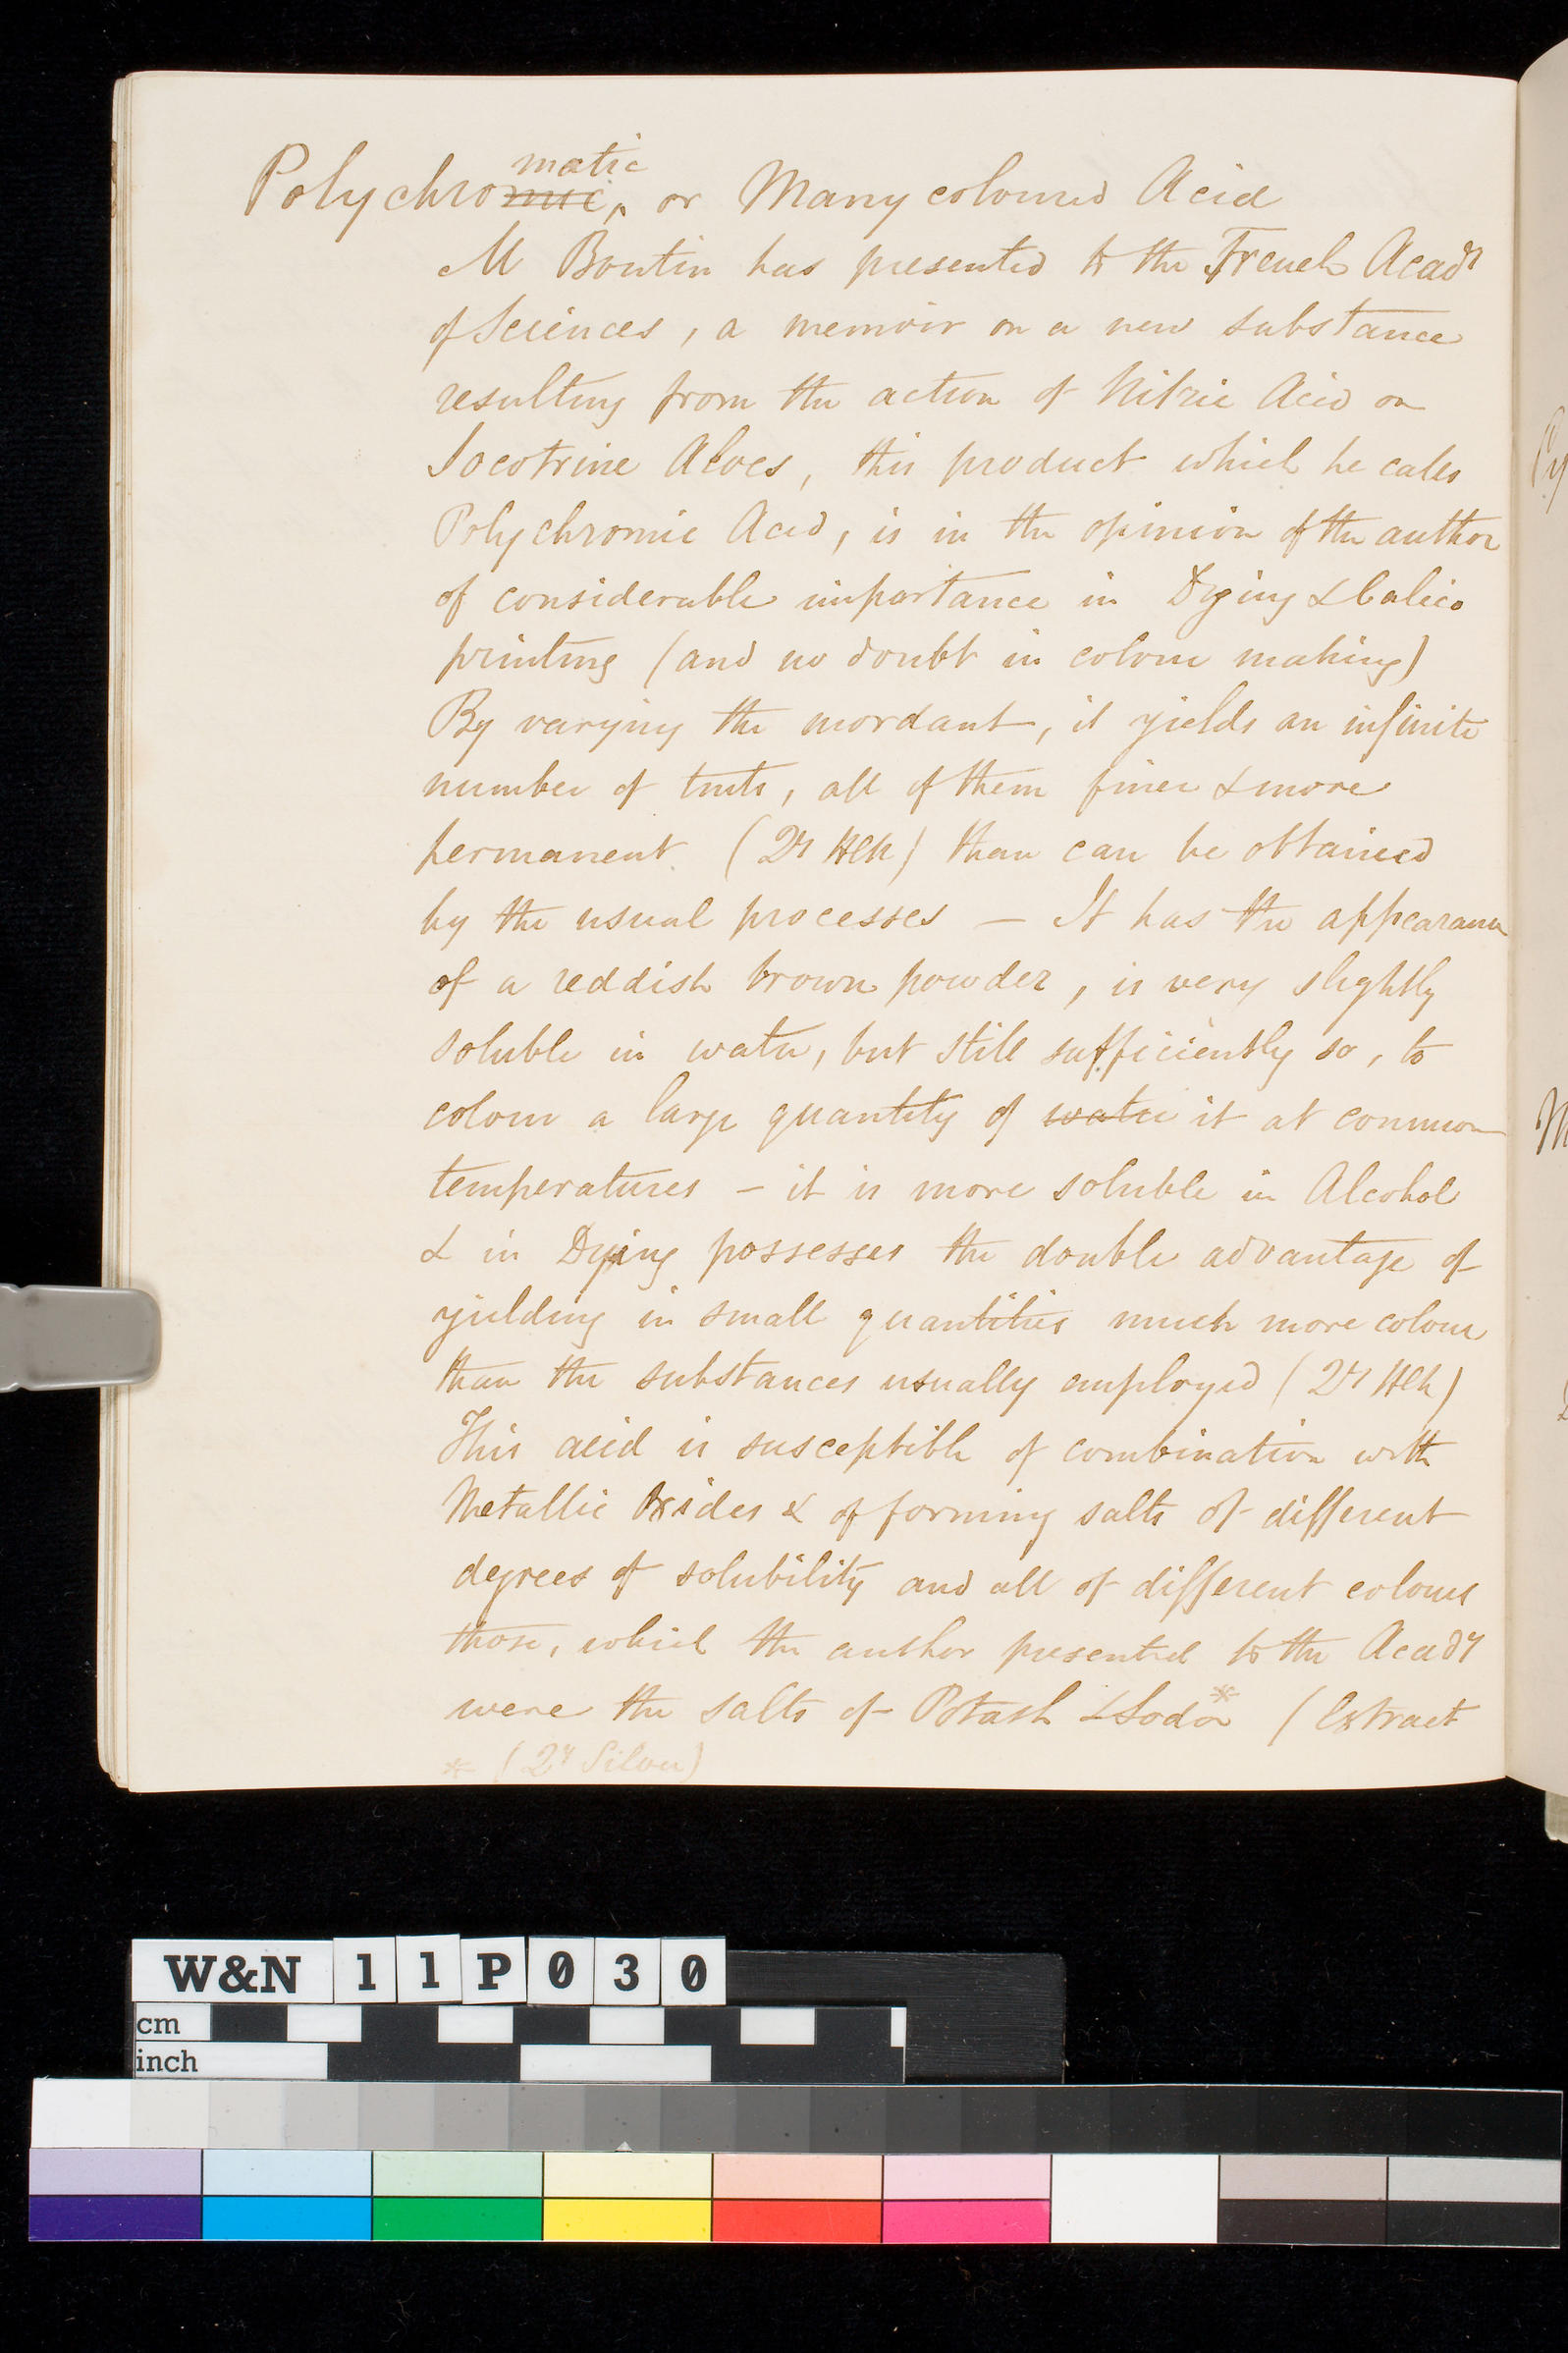 Polychromic^matic, or Many coloured Acid
M Boutin has presented to the French Acady
of Sciences, a memoir on a new substance
resulting from the action of Nitric Acid on
Socotrine Aloes, this product which he calls
Polychromic Acid, is in the opinion of the author
of considerable importance in Dying & Calico
printing (and no doubt in colour making)
By varying the mordant, it yields an infinite
number of tints, all of them finer & more
permanent (Qy HCR) than can be obtained
by the usual processes — It has the appearance
of a reddish brown powder, is very slightly
soluble in water, but still sufficiently so, to
colour a large quantity of water it at common
temperatures – it is more soluble in Alcohol
& in Dying possesses the double advantage of
yielding in small quantities much more colour
than the substances usually employed (Qy HCR)
This acid is susceptible of combination with
Metallic Oxides & of forming salts of different
degrees of solubility and all of different colours
those, which the author presented to the Acady
were the salts of Potash & Soda * (Extract
* (Qy Silver)
W&N 11P030
cm
inch